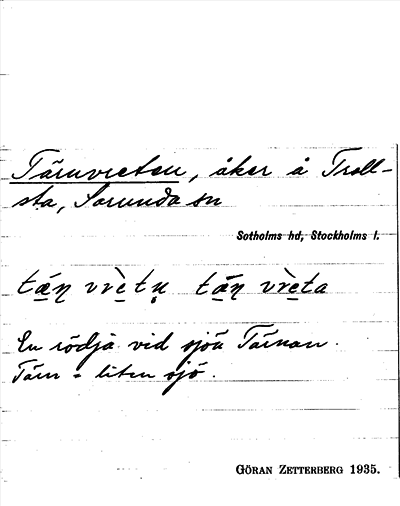 Tärnvreten, åker å Troll-
sta, Sorunda sn
Sotholms hd, Stockholms l.
En rödja vid sjön Tärnan.
Tärn = liten sjö.
GÖRAN ZETTERBERG 1935.